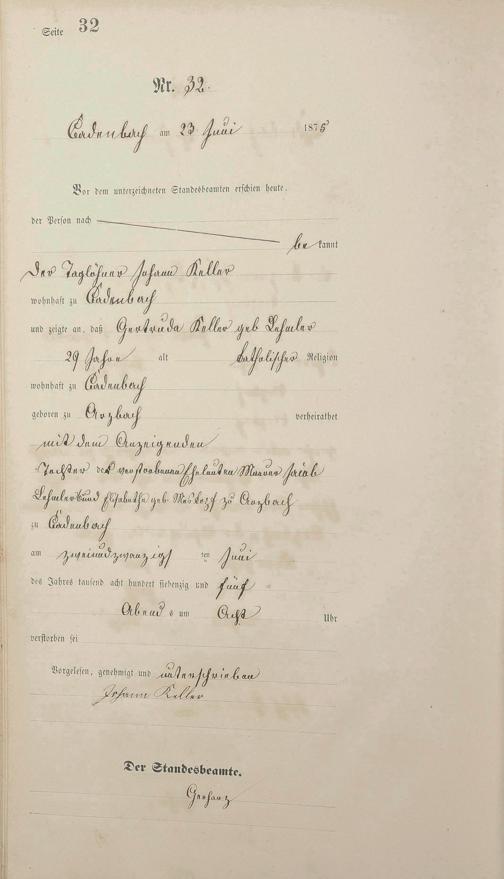 Seite 32
Nr. 32.
Cadenbach am 23 Juni 1875
Vor dem unterzeichneten Standesbeamten erschien heute,
der Person nach
be kannt
der Taglöhner Johann Keller
wohnhaft zu Cadenbach
und zeigte an, daß Gertruda Keller geb Lehmler
29 Jahre alt katholischer Religion
wohnhaft zu Cadenbach
geboren zu Arzbach verheirathet
mit dem Anzeigenden
Tochter der verstorbenen Eheleuten Maurer Jacob
Lehmler und Elisabetha geb zu Arzbach
zu Cadenbach
am zweiundzwanzigs ten Juni
des Jahres tausend acht hundert siebenzig und fünf
Abend s um Acht Uhr
verstorben sei
Vorgelesen, genehmigt und unterschrieben
Johann Keller
Der Standesbeamte.
Gerharz